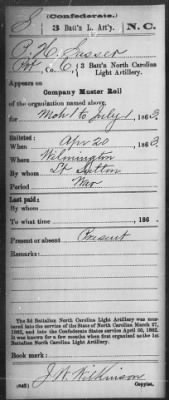 S (Confederate.)
3 Batt'n L. Art'y. N.C.
Sasser
Pvt, Co. C, 3 Batt'n North Carolina Light Artillery.
Appears on
Company Muster Roll
of the organization named above,
for Mch 1 to July 1, 1863.
Enlisted:
When Apr 20, 1863.
Where Wilmington
By whom Lt. Sutton
Period War
Last paid:
By whom
To what time , 186 .
Present or absent Present
Remarks:
The 3d Battalion North Carolina Light Artillery was mustered
into the service of the State of North Carolina March 27,
1862, and into the Confederate States service April 30, 1862.
It was known for a few months when first organized as the 1st
Battalion North Carolina Light Artillery.
Book mark:
J. W. Wilkinson
Copyist.